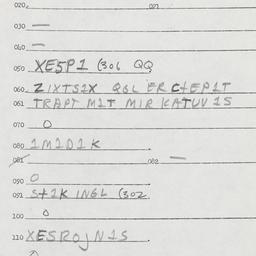 020. 021
030 —
040 —
050 XE5P1 (306 QQ
060 ZIXTS2X QGL ERC+EP1T
061 TRAPT M1T MIR KATUV 15
070 O
080 1M1D1K
081 082 —
090 O
091 S+1K INGL (302
100 O
110 XESROJN1S